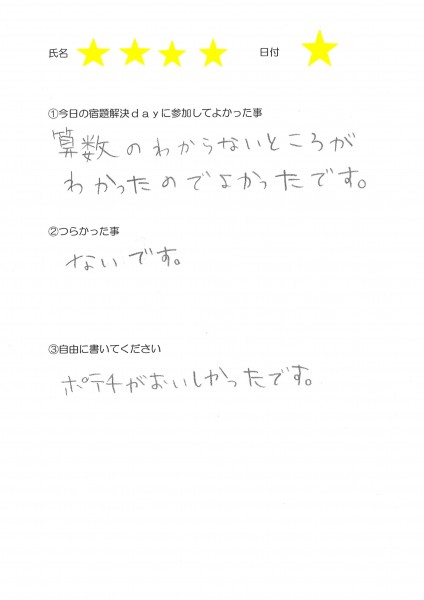 氏名 日付
①今日の宿題解決ｄａｙに参加してよかった事
算数のわからないところが
わかったのでよかったです。
②つらかった事
ないです。
③自由に書いてください
ポテチがおいしかったです。